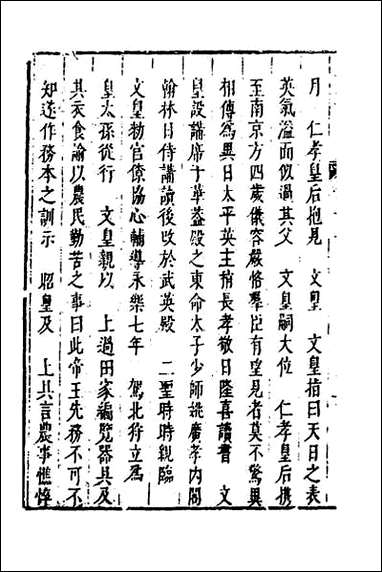 月　仁孝皇后抱見　文皇　文皇指曰天日之表
英氣溢面似過其父　文皇嗣大位　仁孝皇后携
至南京方四歲儀容嚴恪羣臣有望見者莫不驚異
相傳為異日太平英主稍長孝敬日隆喜讀書　文
皇設講席于華葢殿之東命太子少師姚廣孝内閣
翰林日侍講讀後改於武英殿　二聖時時親臨
文皇勑官僚協心輔導永樂七年　駕北狩立爲
皇太孫從行　文皇親以　上過田家徧覽器具及
其衣食諭以農民勤苦之事曰此帝王先務不可不
知遂作務本之訓示　昭皇及　上具言農事憔悴